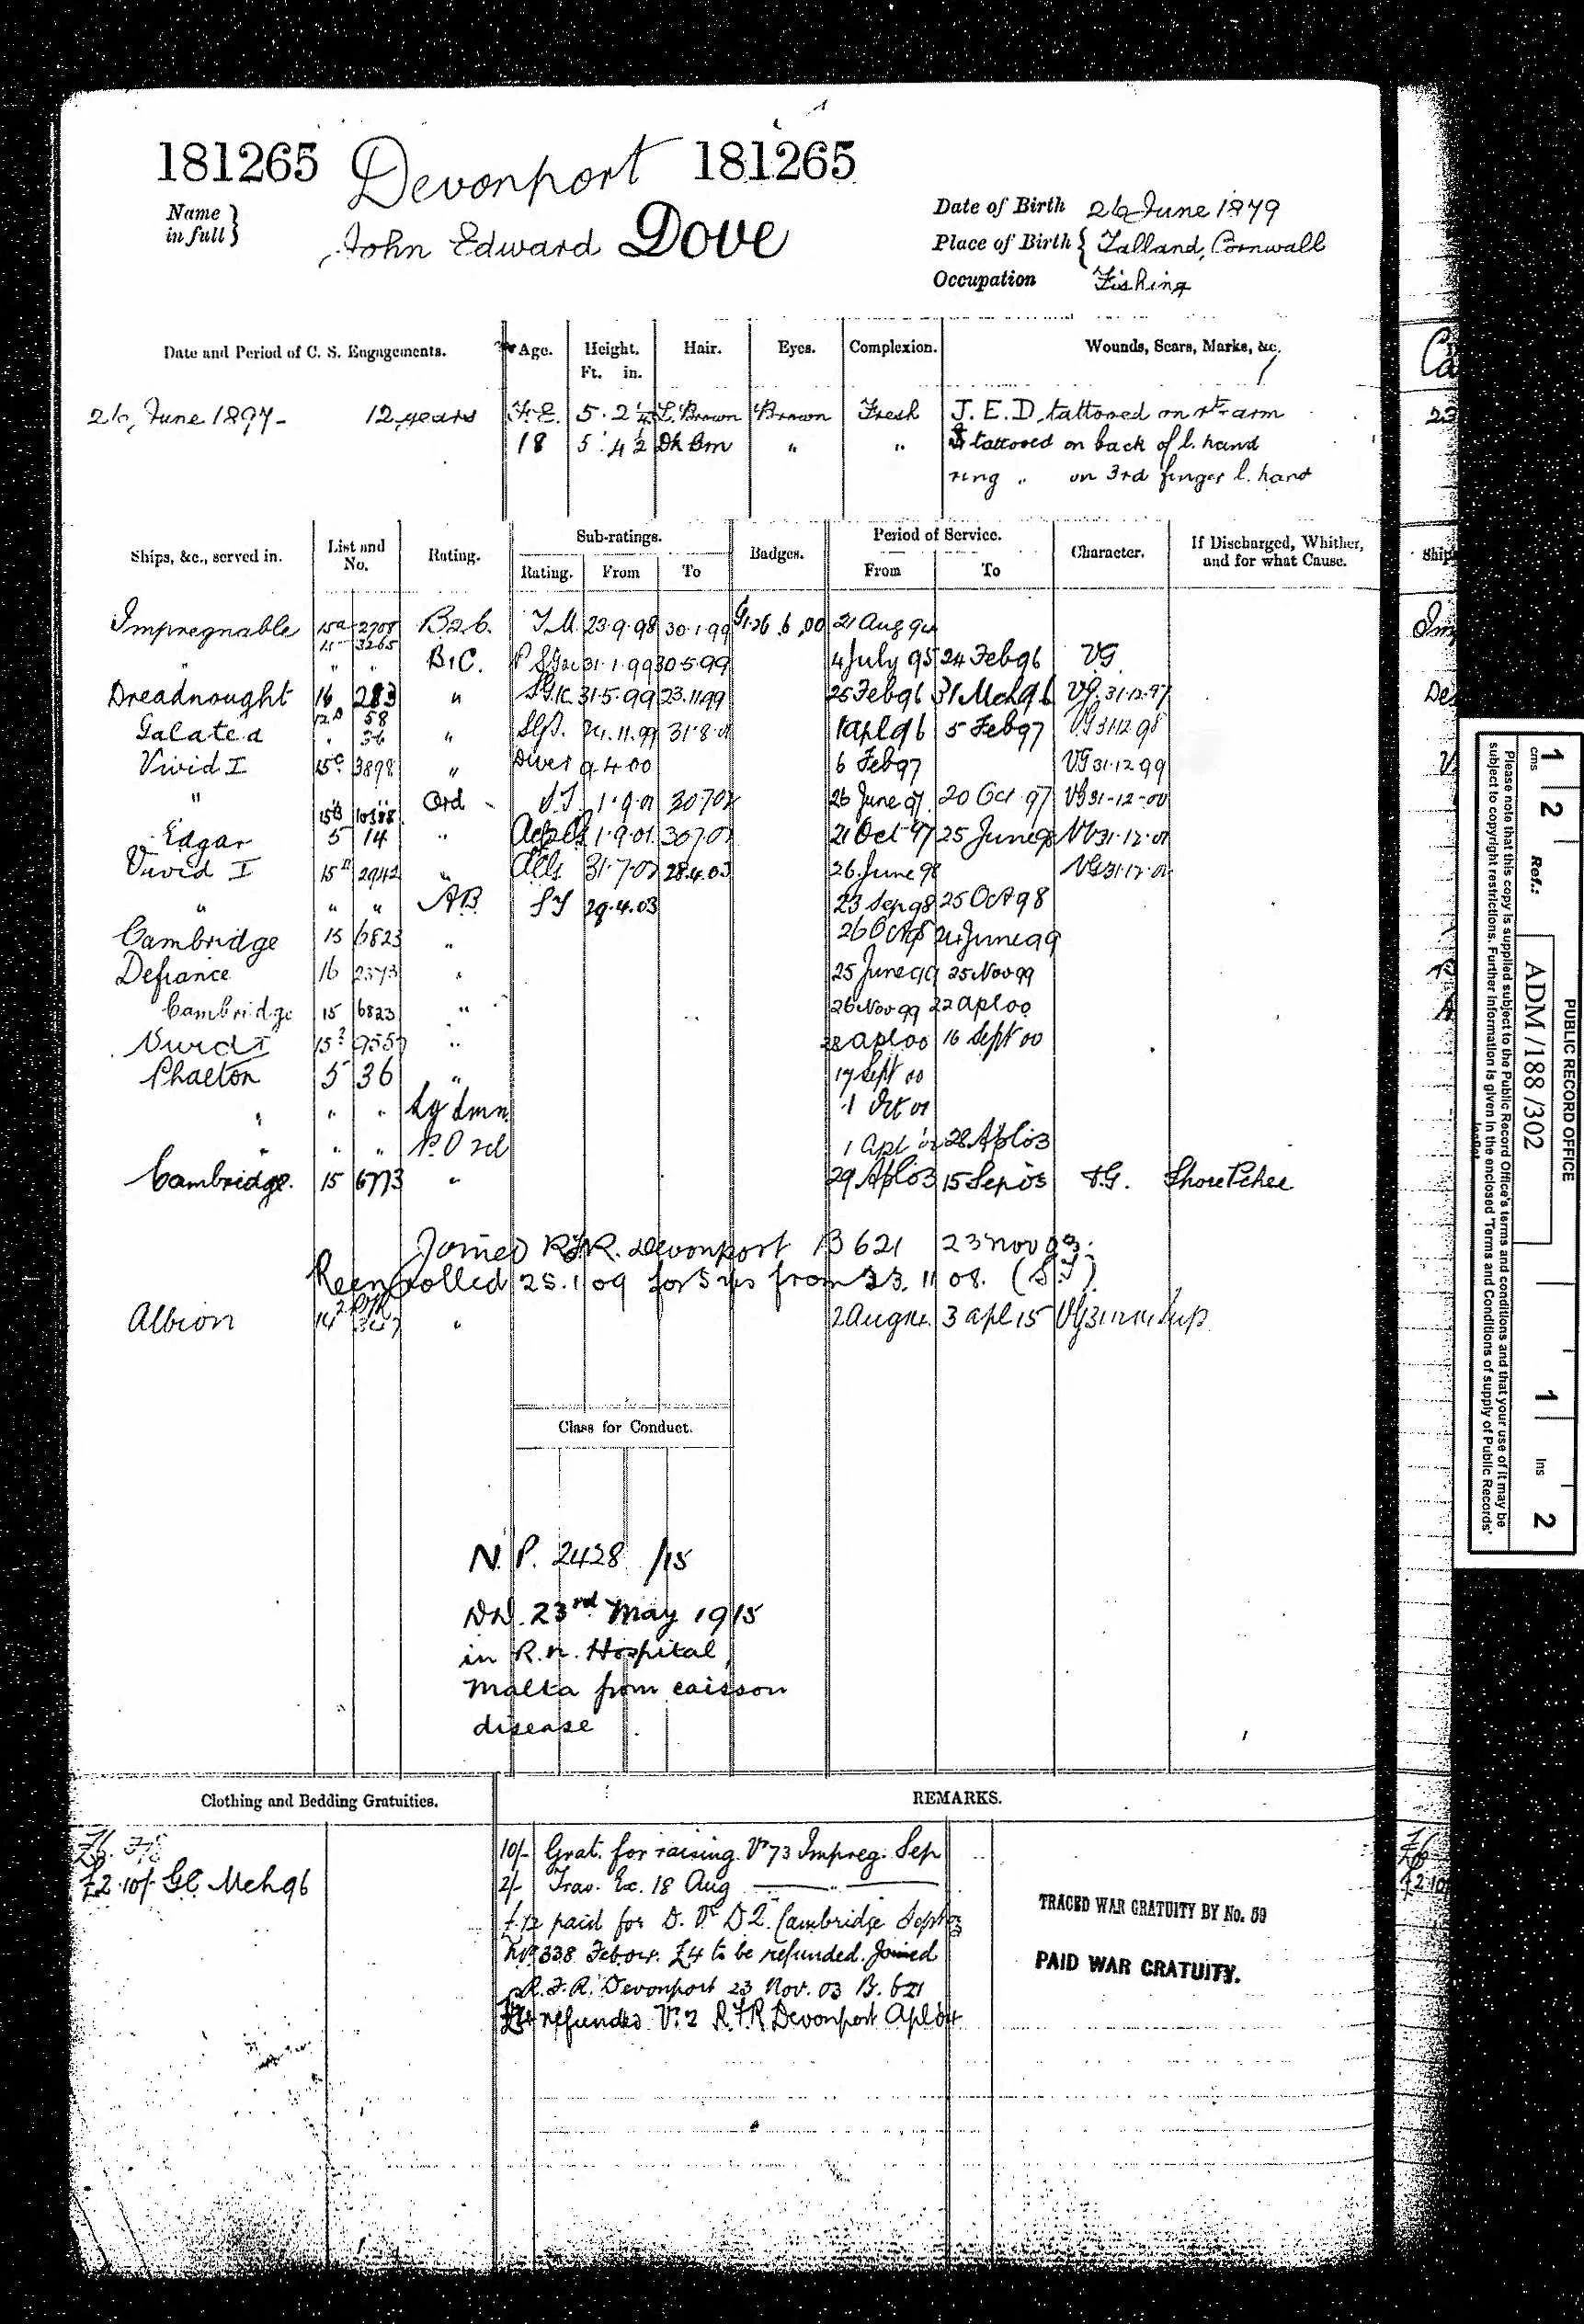 181265 Devonport 181265
Name in full } John Edward Dove
Date of Birth 26 June 1879
Place of Birth { Talland, Cornwall
Occupation Fishing
Date and Period of C. S. Engagements. Age. Height. Ft. in. Hair. Eyes. Complexion. Wounds, Scars, Marks, &c.
26 June 1897 - 12 years F.E. 5 . 2 1/4 L. Brown Brown Fresh J. E. D. tattooed on rt arm
18 5 . 4 1/2 Dk Brn " " tattooed on back of l. hand
ring " on 3rd finger l. hand
Ships, &c., served in. List and No. Rating. Sub-ratings. Rating. From To Badges. Period of Service. From To Character. If Discharged, Whither, and for what Cause.
Impregnable 15a 2708 B2c. T.M. 23.9.98 30.1.99 G1.26.6.00 21 Aug 94
15 3265
" " " B1C. 31.1.99 30.5.99 4 July 95 24 Feb 96 VG
Dreadnought 16 283 " 31.5.99 23.11.99 25 Feb 96 31 Mch 96 VG. 31.12.97
Galatea 12a 58 " 36 " 24.11.99 31.8.01 1 Apl 96 5 Feb 97 VG 31.12.98
Vivid I 15c 3898 " Diver 9.4.00 6 Feb 97 VG 31.12.99
" 15B Ord 1.9.01 30.7.02 26 June 97 20 Oct 97 VG 31-12-00
Edgar 5 14 " 1.9.01 30.7.02 21 Oct 97 25 June 98 31.12.01
Vivid I 15 2942 " 31.7.02 28.4.03 26 June 98 VG 31.12.02
" " " AB ST 29.4.03 23 Sep 98 25 Oct 98
Cambridge 15 6823 " 26 Oct 98 24 June 99
Defiance 16 2373 " 25 June 99 25 Nov 99
Cambridge 15 6823 " 26 Nov 99 22 Apl 00
Vivid I 15 " Apl 00 16 Sept 00
Phaeton 5 36 " 17 Sept 00
" " " Lg Smn. 1 Oct 01
" " " P.O 2cl 1 Apl 02 28 Apl 03
Cambridge. 15 6773 " 29 Apl 03 15 Sep 03 V.G. Shore Pchee
Joined R.F.R. Devonport B 621 23 Nov 03.
Reenrolled 25.1.09 for 5 yrs from 23.11.08. (S.T)
Albion 14 " 2 Aug 14. 3 Apl 15
Class for Conduct.
N.P. 2428 /15
DD. 23rd May 1915
in R.N. Hospital,
Malta from caisson
disease
Clothing and Bedding Gratuities. REMARKS.
£2.10/- Gc Mch 96
10/- Grat. for raising. Vr 73 Impreg. Sep
2/- Trav. Ex. 18 Aug — " —
£12 paid for D. Vr D2. Cambridge Sept 03
338 Feb 04. £4 to be refunded. Joined
R.F.R. Devonport 23 Nov. 03 B. 621
£4 refunded Vr 2 R.F.R Devonport Apl 04
TRACED WAR GRATUITY BY No. 59
PAID WAR GRATUITY.
PUBLIC RECORD OFFICE
1 2 Ref.: ADM /188 /302 1 2
cms ins
Please note that this copy is supplied subject to the Public Record Office's terms and conditions and that your use of it may be
subject to copyright restrictions. Further information is given in the enclosed 'Terms and Conditions of supply of Public Records'
leaflet